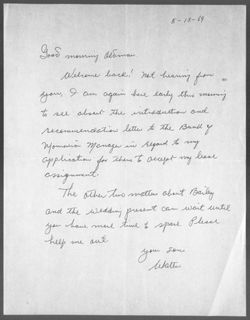 8-18-69
Good morning
Welcome back! Not hearing from
you, I am again here early this morning
to see about the introduction and
recommendation letter to the Board of
Manager in regard to my
application for them to accept my lease
assignment.
The other two matter about Bailey
and the wedding present can wait until
you have more time to spare. Please
help me out.
your son
Walter